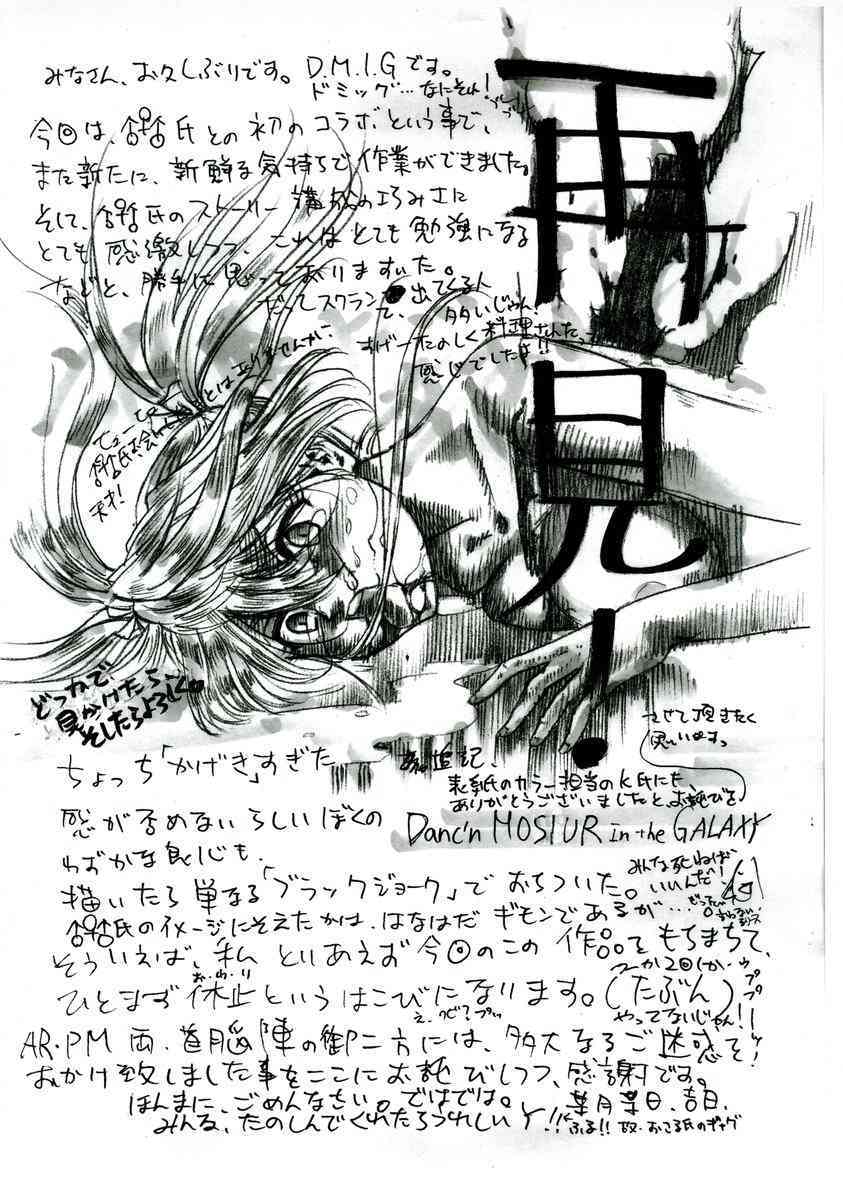 みなさん、お久しぶりです。D.M.I.Gです。
ドミッグ…なにそれ!
今回は、氏との初のコラボという事で、
また新たに、新鮮な気持ちで作業ができました。
そして、氏のストーリー構成の巧みさに
とても感激しつつ、これはとても勉強になる
などと、勝手に思っておりますいた。
だってスクラン
出てくる人
多いじゃん!
すげーたのしく料理されたっ
感じでしたよ!!
とはありませんが、
天才!
再見!
どっかで
見かけたら、
そしたらよろしく。
ちょっち「かげき」すぎた
感が否めないらしいぼくの
わずかな良心も、
描いたら単なる「ブラックジョーク」でおちついた。
氏のイメージにそえたかは、はなはだギモンであるが…
追記、
表紙のカラー担当のK氏にも
ありがとうございましたと、お詫びを
させて頂きたく
思います
Danc'n MOSIUR in the GALAXY
みんな死ねば
いいんだ!
そういえば、私といあえず今回のこの作品をもちまちて、
ひとまず休止というはこびになります。(たぶん)
お・わ・り
やってないじゃん!!
AR・PM両・首脳陣の御二方には、多大なるご迷惑を
おかけ致しました事をここにお詫びしつつ、感謝です。
ほんまに、ごめんなさい。ではでは。
葉月某日、吉日、
みんな、たのしんでくれたらうれしいY!!